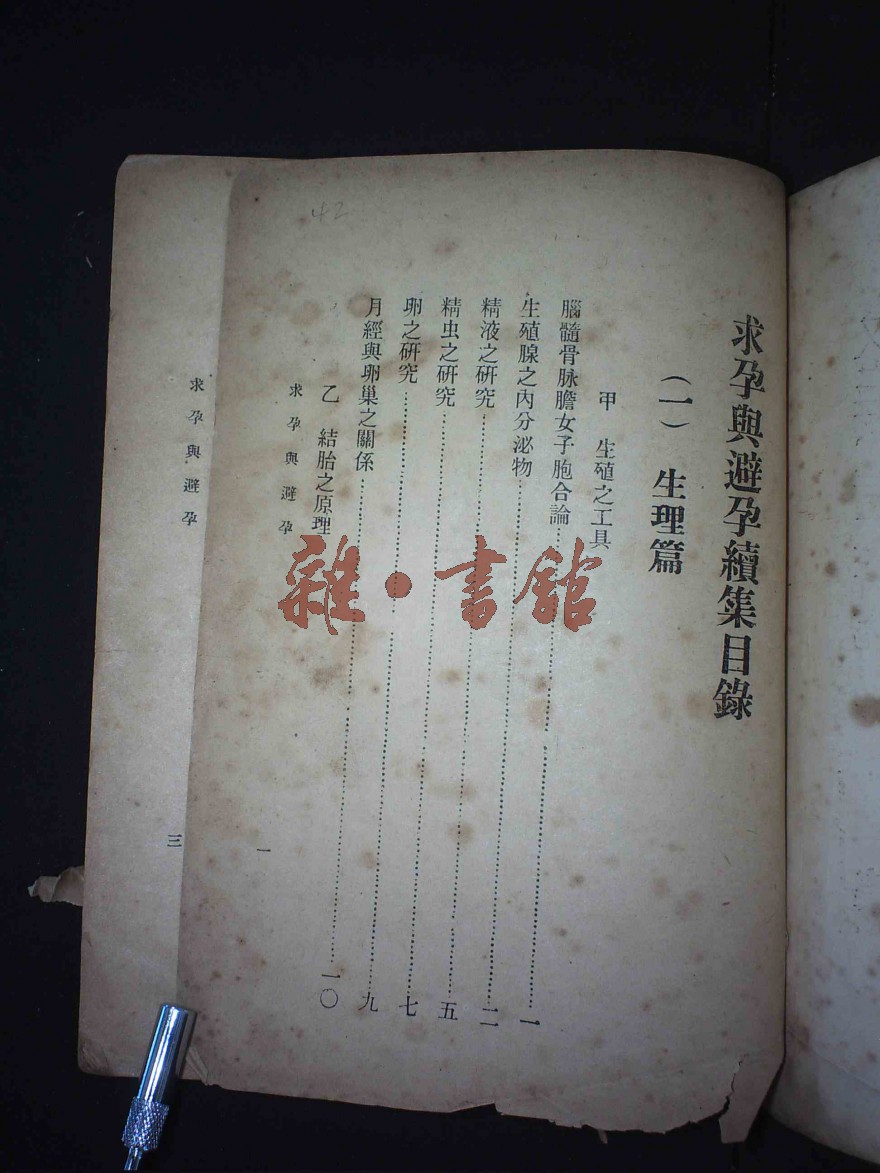 求孕與避孕續集目錄
（一） 生理篇
甲 生殖之工具
腦髓骨脉膽女子胞合論……一
生殖腺之內分泌物……二
精液之研究……五
精虫之研究……七
卵之研究……九
月經與卵巢之關係……一〇
乙 結胎之原理
求孕與避孕 一
求孕與避孕 三
42
雜•書館